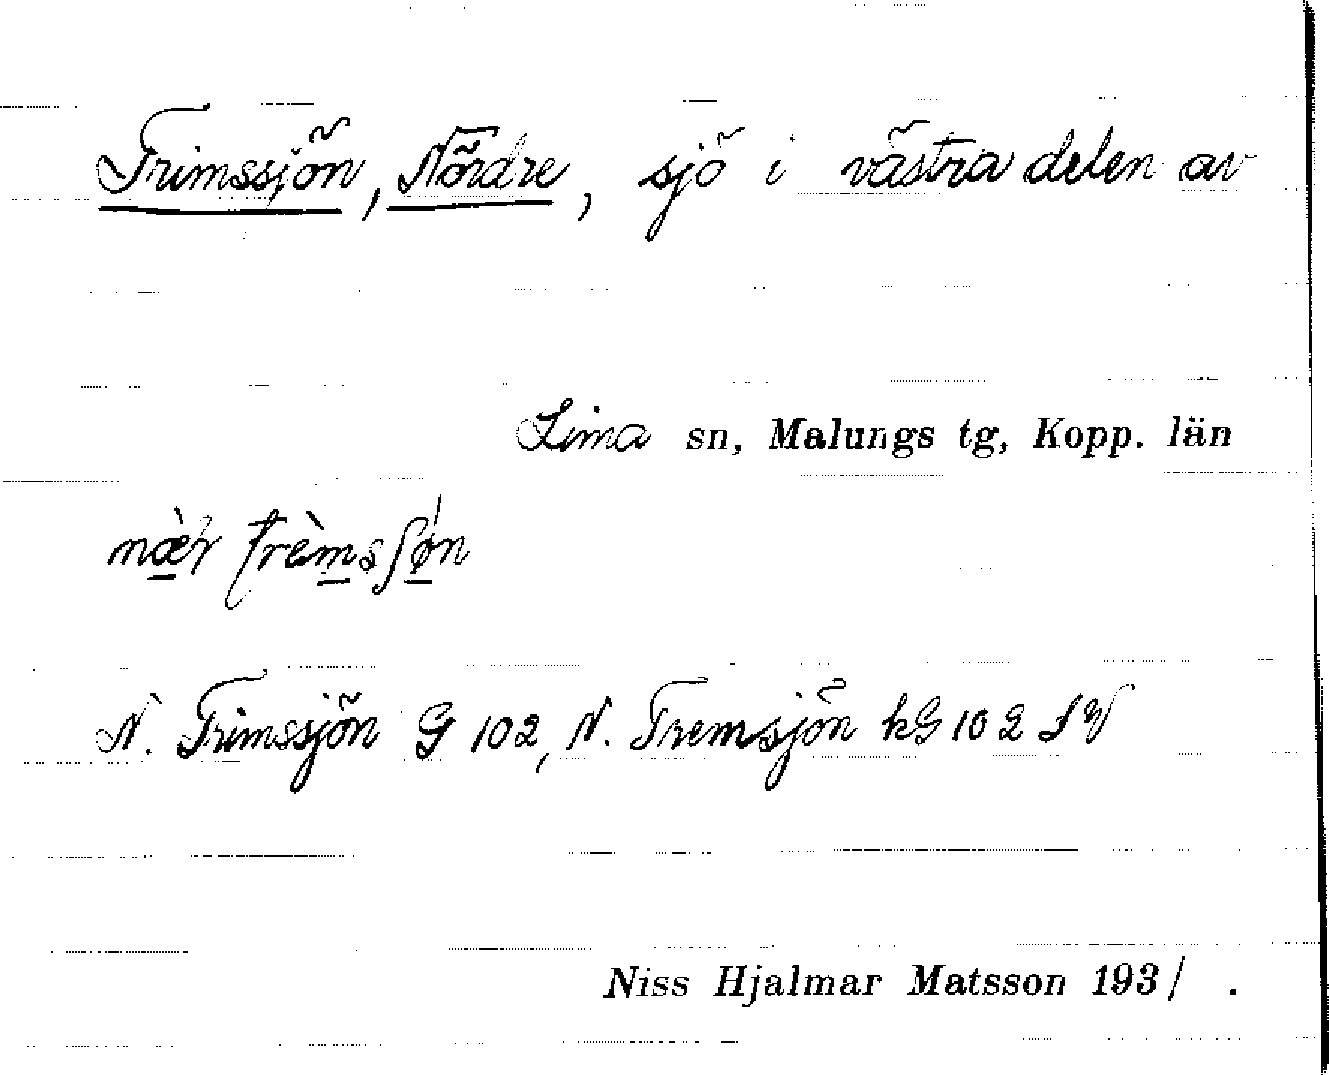 Trimssjön, Nördre, sjö i västra delen av
Lima sn, Malungs tg, Kopp. län
næ̀r trèmsʃøn
N. Trimssjön G 102, N. Tremsjön kG 102 SV
Niss Hjalmar Matsson 1931.